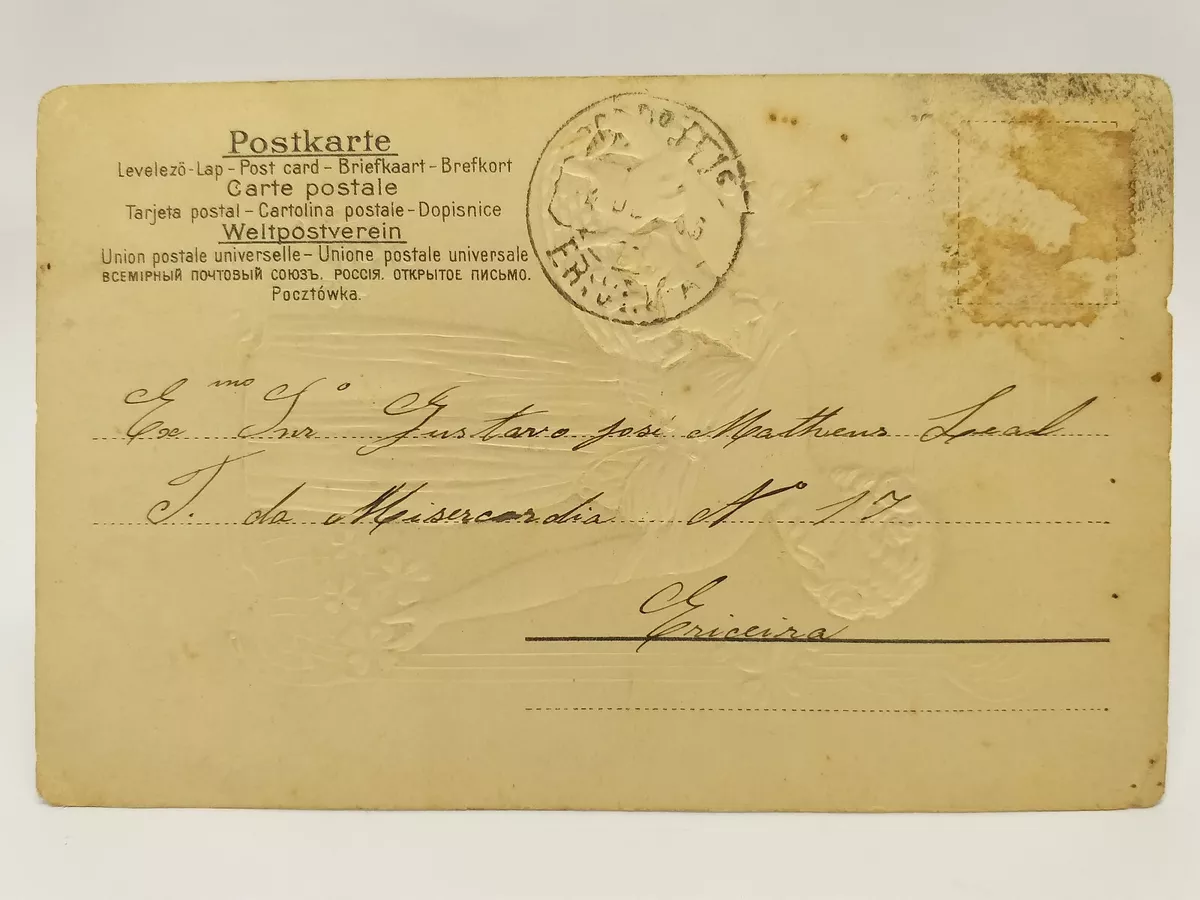 Postkarte
Levelező-Lap – Post card – Briefkaart – Brefkort
Carte postale
Tarjeta postal – Cartolina postale – Dopisnice
Weltpostverein
Union postale universelle – Unione postale universale
ВСЕМІРНЫЙ ПОЧТОВЫЙ СОЮЗЪ. РОССІЯ. ОТКРЫТОЕ ПИСЬМО.
Pocztówka.
Exmo Snr Gustavo José Matheus Leal
T. da Misercordia Nº 17
Ericeira